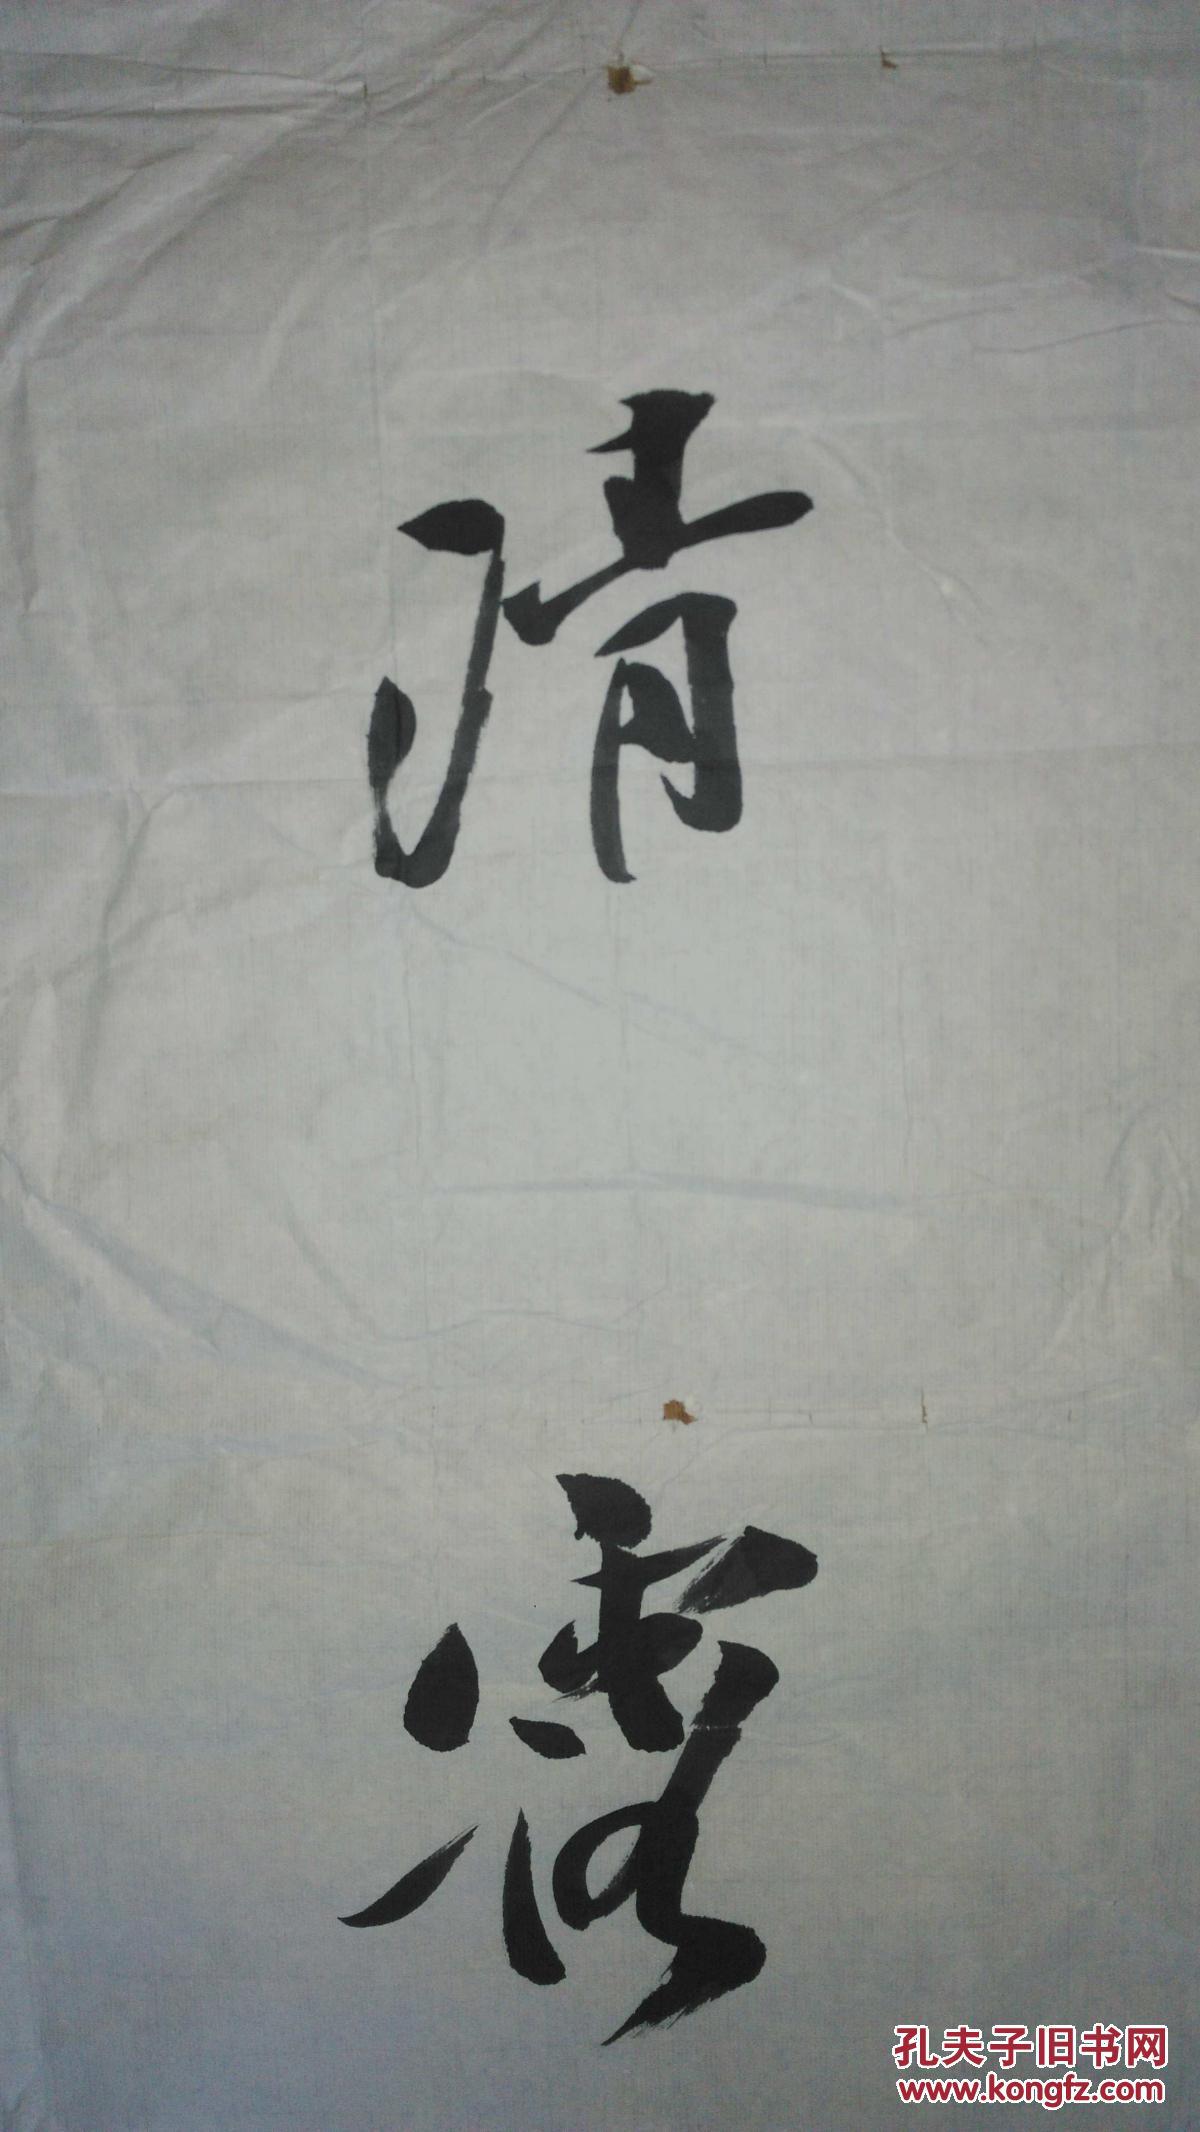 清
孔夫子旧书网
www.kongfz.com